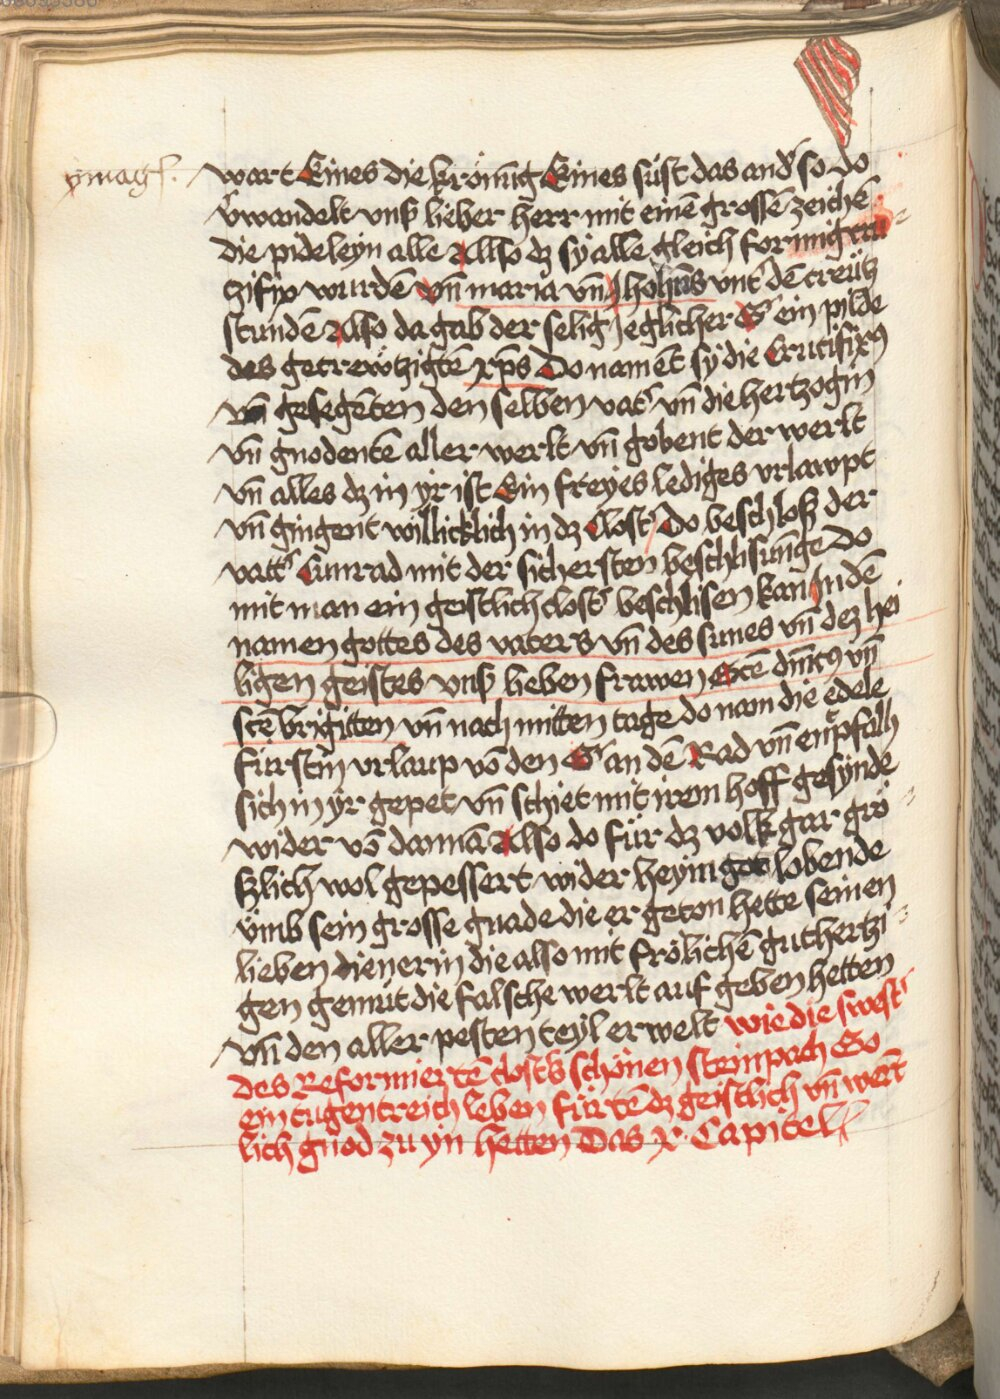 ymagṡ.
wart Eines die krönūg Eines süst das and̛ so do
v̈wandelt vnß lieber herr mit einē grossē zeichē
die pideleyn alle Allso dz sy alle gleich formig cru
tzifix wurdē Vn̄ maria vn̄ Johān̄s vnt̛ dē creütz
stunden Also da gab der selig jeglicher S̛ ein pilde
des getrewtzigtē xp̄s Do namēt sy die Crucifixꝰ
vn̄ gesegēten den selben vat̛ vn̄ die hertzogin
vn̄ gnodentē aller werlt vn̄ gobent der werlt
vn̄ alles dz in yr ist Ein freyes lediges vrlawpt
vn̄ gingent willicklich in dz Clost̛ Do beschloß der
vatt̛ Cunrad mit der sichersten beschlisunge Do
mit man ein geistlich clost̛ beschlisen kan In dē
namen gottes des vaters vn̄ des sunes vn̄ dez hei
ligen geistes vnß lieben frawen Sctē dn̄icꝰ vn̄
sctē brigitten vn̄ nach mitten tage do nam die edele
fürstin vrlaup vō den S̛ an dē Rad vn̄ enpfalh
sich in yr gepet vn̄ schiet mit irem hoff gesynde
wider vō dannā Allso do für dz volk gar grö
ßlich wol gepessert wider heym got lobende
vmb sein grosse gnade die er geton hette seinen
lieben dienerin die also mit frölichē guthertzi
gen gemüt die falsche werlt auf geben hetten
vn̄ den aller pesten teyl erwelt wie die swest̛
des Reformiertē closts̛ schönen steinpach So
ein tugentreich leben fürtē dz geistlich vn̄ wert
lich gnod zu yn hetten Das x. Capitel